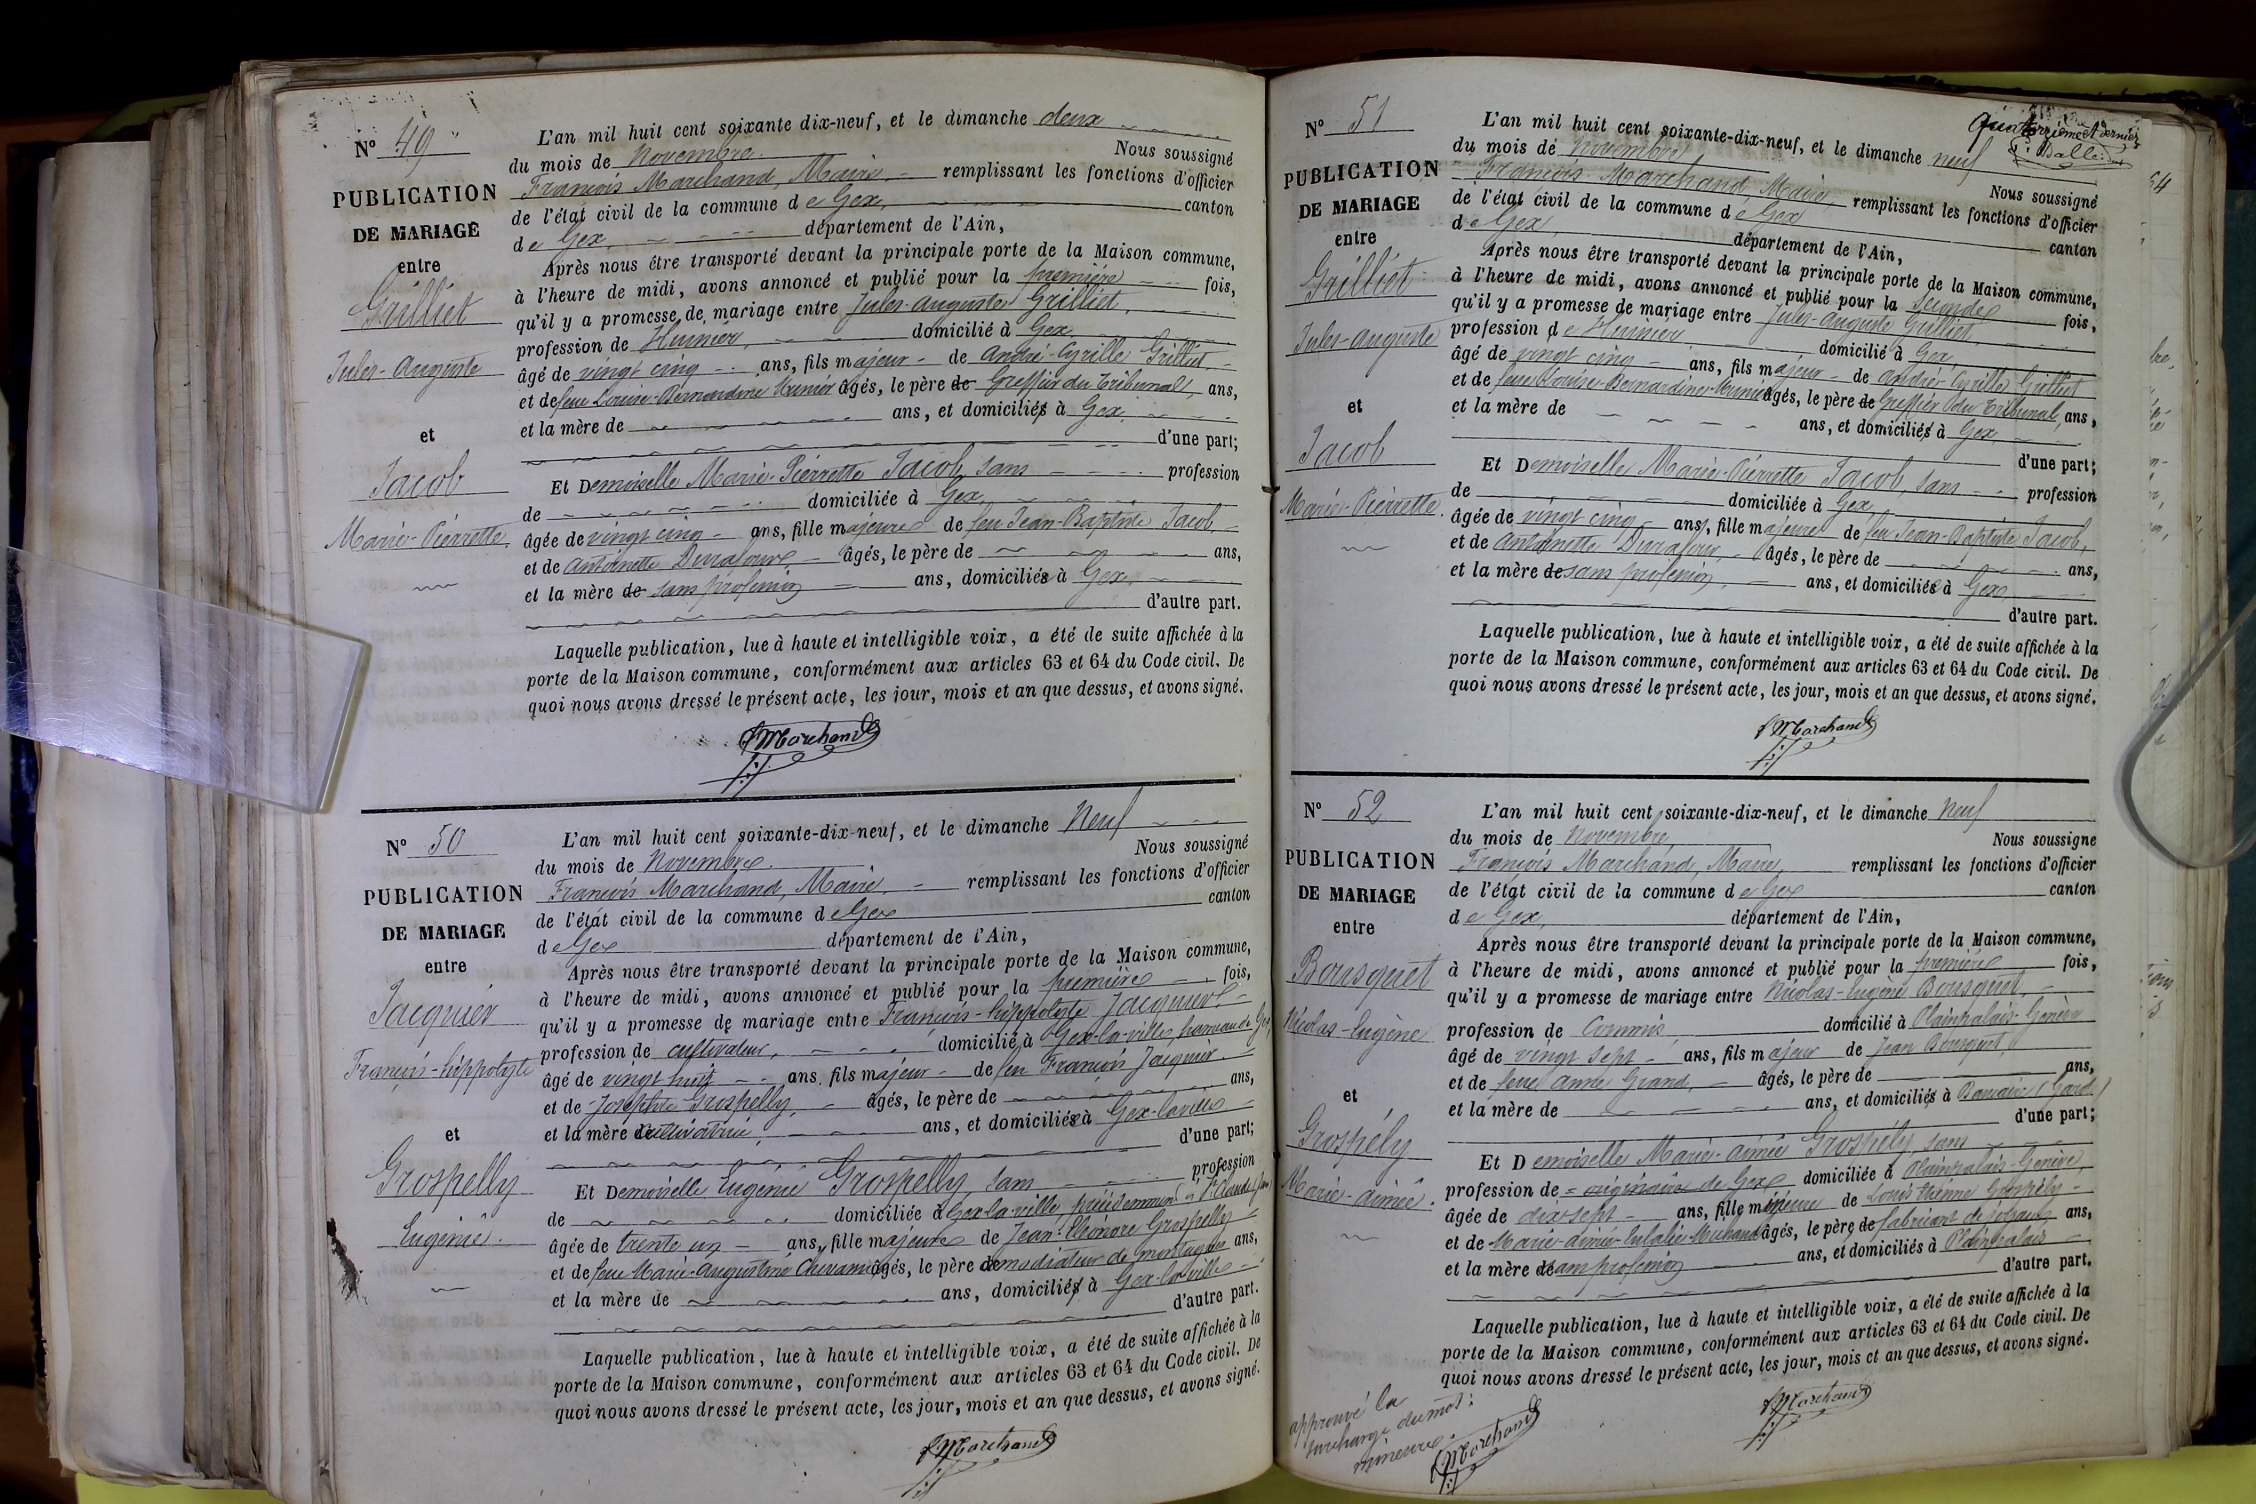 N° 49
PUBLICATION
DE MARIAGE
entre
Grilliet
Jules-Auguste
et
Jacob
Marie-Pierrette.
L'an mil huit cent soixante dix-neuf, et le dimanche deux
du mois de Novembre. Nous soussigné
François Marchand, Maire, remplissant les fonctions d'officier
de l'état civil de la commune de Gex, canton
de Gex, département de l'Ain,
Après nous être transporté devant la principale porte de la Maison commune,
à l'heure de midi, avons annoncé et publié pour la première fois,
qu'il y a promesse de mariage entre Jules-Auguste Grilliet,
profession de Huissier, domicilié à Gex
âgé de vingt cinq ans, fils majeur de André-Cyrille Grilliet,
et de feue Louise-Bernardine Meunier âgés, le père de Greffier du Tribunal, ans,
et la mère de ans, et domiciliés à Gex,
d'une part;
Et Demoiselle Marie-Pierrette Jacob, sans profession
de domiciliée à Gex,
âgée de vingt cinq ans, fille majeure de feu Jean-Baptiste Jacob,
et de Antoinette Durafour, âgés, le père de ans,
et la mère de sans profession ans, domiciliés à Gex,
d'autre part.
Laquelle publication, lue à haute et intelligible voix, a été de suite affichée à la
porte de la Maison commune, conformément aux articles 63 et 64 du Code civil. De
quoi nous avons dressé le présent acte, les jour, mois et an que dessus, et avons signé.
f Marchand
N° 50
PUBLICATION
DE MARIAGE
entre
Jacquier
François-hippolyte
et
Grospelly
Eugénie.
L'an mil huit cent soixante-dix-neuf, et le dimanche Neuf
du mois de Novembre. Nous soussigné
François Marchand, Maire, remplissant les fonctions d'officier
de l'état civil de la commune de Gex canton
de Gex département de l'Ain,
Après nous être transporté devant la principale porte de la Maison commune,
à l'heure de midi, avons annoncé et publié pour la première fois,
qu'il y a promesse de mariage entre François-hippolyte Jacquier
profession de cultivateur, domicilié à Gex-la-ville, hameau de Gex,
âgé de vingt huit ans, fils majeur de feu François Jacquier
et de Josephte Grospelly, âgés, le père de ans,
et la mère de cultivatrice, ans, et domiciliés à Gex-la-ville
d'une part;
Et Demoiselle Eugénie Grospelly, sans profession
de domiciliée à Gex-la-ville, précédemment à St Claude (Jura)
âgée de trente un ans, fille majeure de Jean-Eléonore Grospelly
et de feue Marie-Augustine âgés, le père de de montagnes ans,
et la mère de ans, domiciliés à Gex-la-ville
d'autre part.
Laquelle publication, lue à haute et intelligible voix, a été de suite affichée à la
porte de la Maison commune, conformément aux articles 63 et 64 du Code civil. De
quoi nous avons dressé le présent acte, les jour, mois et an que dessus, et avons signé.
f Marchand
Quatorzième et dernier
N° 51
PUBLICATION
DE MARIAGE
entre
Grilliet
Jules-Auguste
et
Jacob
Marie-Pierrette.
L'an mil huit cent soixante-dix-neuf, et le dimanche neuf
du mois de Novembre Nous soussigné
François Marchand, Maire, remplissant les fonctions d'officier
de l'état civil de la commune de Gex canton
de Gex, département de l'Ain,
Après nous être transporté devant la principale porte de la Maison commune,
à l'heure de midi, avons annoncé et publié pour la seconde fois,
qu'il y a promesse de mariage entre Jules-Auguste Grilliet,
profession de Huissier domicilié à Gex,
âgé de vingt cinq ans, fils majeur de André-Cyrille Grilliet
et de feue Louise-Bernardine Meunier âgés, le père de Greffier du Tribunal, ans,
et la mère de ans, et domiciliés à Gex
d'une part;
Et Demoiselle Marie-Pierrette Jacob, sans profession
de domiciliée à Gex
âgée de vingt cinq ans, fille majeure de feu Jean-Baptiste Jacob,
et de Antoinette Durafour, âgés, le père de ans,
et la mère de sans profession, ans, et domiciliés à Gex
d'autre part.
Laquelle publication, lue à haute et intelligible voix, a été de suite affichée à la
porte de la Maison commune, conformément aux articles 63 et 64 du Code civil. De
quoi nous avons dressé le présent acte, les jour, mois et an que dessus, et avons signé.
f Marchand
N° 52
PUBLICATION
DE MARIAGE
entre
Bousquet
Nicolas-Eugène
et
Grospély
Marie-aimée.
L'an mil huit cent soixante-dix-neuf, et le dimanche Neuf
du mois de Novembre Nous soussigné
François Marchand, Maire, remplissant les fonctions d'officier
de l'état civil de la commune de Gex canton
de Gex, département de l'Ain,
Après nous être transporté devant la principale porte de la Maison commune,
à l'heure de midi, avons annoncé et publié pour la première fois,
qu'il y a promesse de mariage entre Nicolas-Eugène Bousquet,
profession de Commis domicilié à Plainpalais-Genève
âgé de vingt sept ans, fils majeur de Jean Bousquet,
et de feue Anne Grand, âgés, le père de ans,
et la mère de ans, et domiciliés à (Gard)
d'une part;
Et Demoiselle Marie-aimée Grospély, sans
profession de originaire de Gex domiciliée à Plainpalais-Genève,
âgée de dix-sept ans, fille mineure de Louis Etienne Grospély
et de Marie-aimée-Eulalie Michaud âgés, le père de fabricant de joyaux ans,
et la mère de sans profession ans, et domiciliés à Plainpalais
d'autre part.
Laquelle publication, lue à haute et intelligible voix, a été de suite affichée à la
porte de la Maison commune, conformément aux articles 63 et 64 du Code civil. De
quoi nous avons dressé le présent acte, les jour, mois et an que dessus, et avons signé.
f Marchand
approuvé la
surcharge du mot:
mineure.
f Marchand